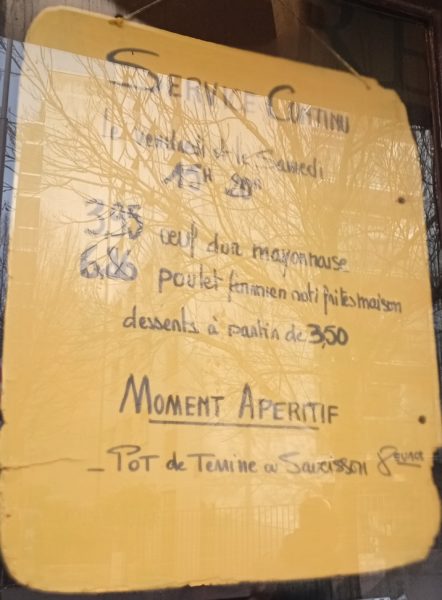 SERVICE CONTINU
le vendredi et le Samedi
15H 20H
3,95 oeuf dur mayonnaise
6,86 poulet fermier roti frites maison
desserts à partir de 3,50
MOMENT APERITIF
- POT de Terrine ou Saucisson